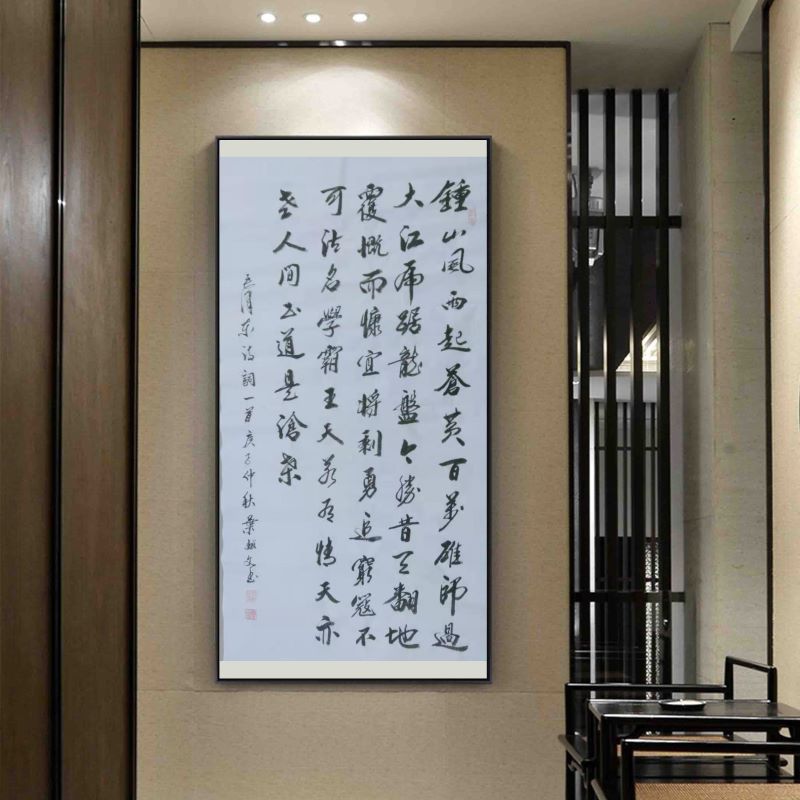 鍾山風雨起蒼黃百萬雄師過
大江虎踞龍盤今勝昔天翻地
覆慨而慷宜將剩勇追窮寇不
可沽名學霸王天若有情天亦
老人間正道是滄桑
毛澤東詩詞一首庚子仲秋葉文書